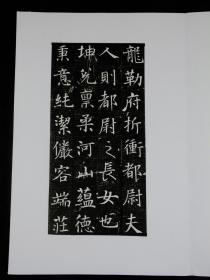 龍勒府折衝都尉夫
人則都尉之長女也
坤元禀柔河山蕴德
秉意純潔儼容端莊